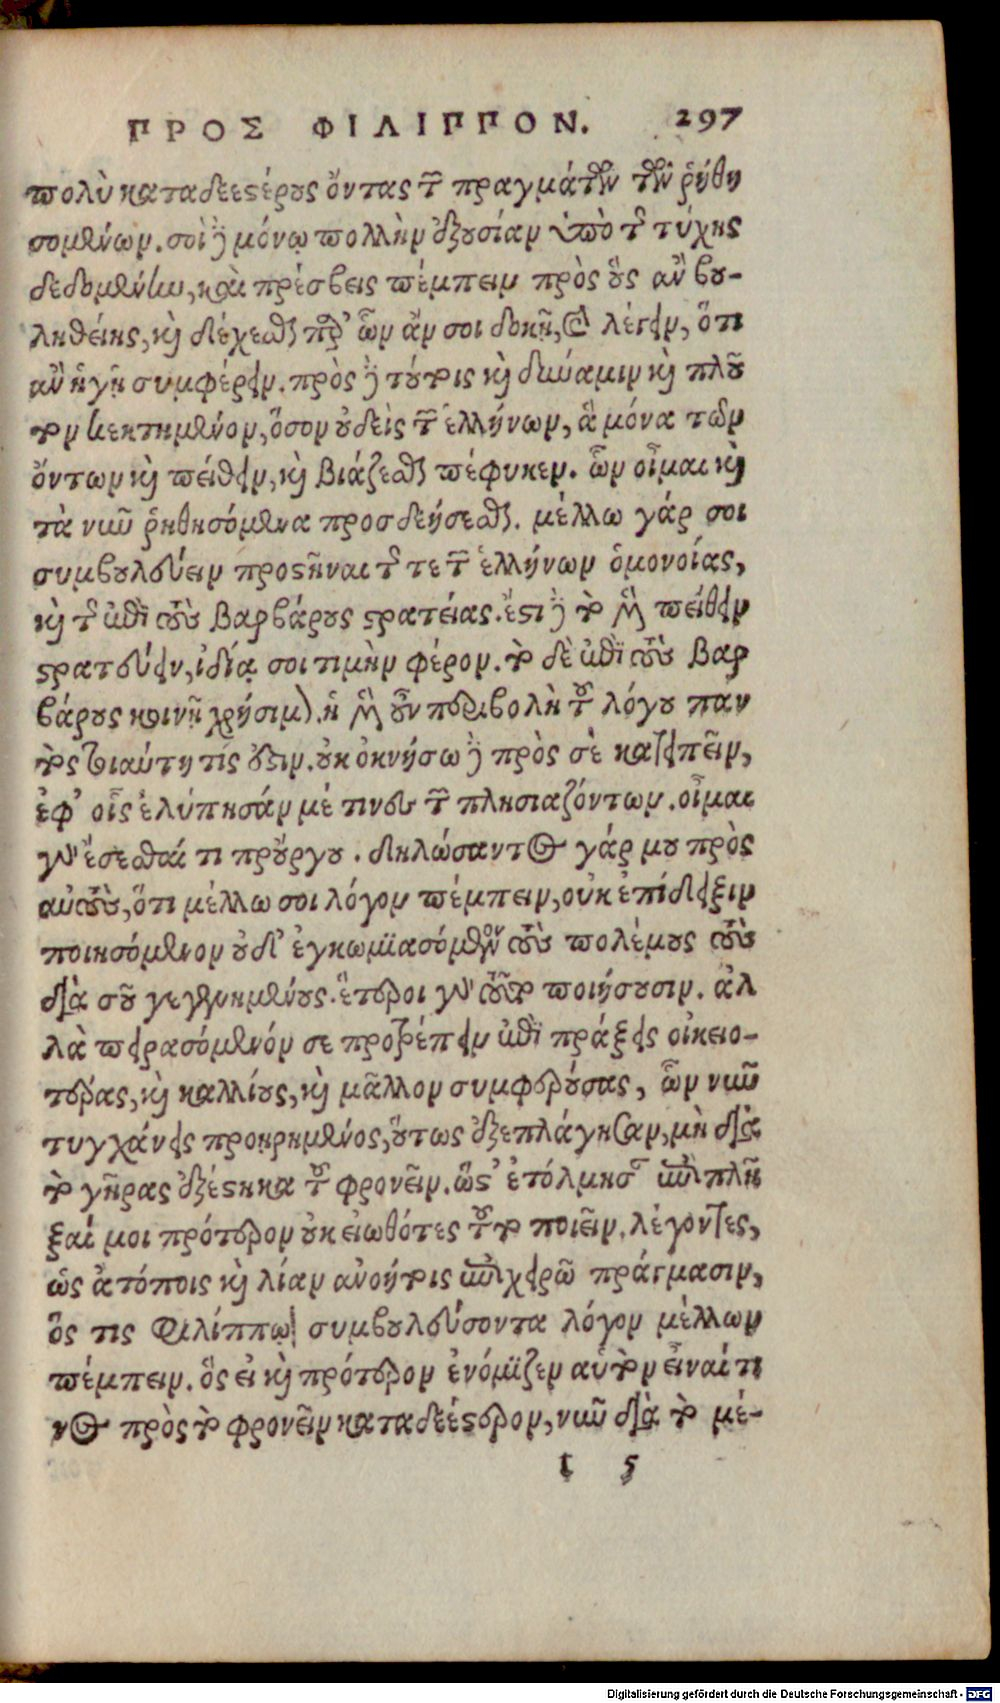 ΠΡΟΣ ΦΙΛΙΠΠΟΝ. 297
πολὺ καταδεεστέρους ὄντας τῶν πραγμάτων τῶν ῥηθη
σομένων. σοὶ δὲ μόνῳ πολλὴν ἐξουσίαν ὑπὸ τῆς τύχης
δεδομένην, καὶ πρέσβεις πέμπειν πρὸς οὓς ἂν βου-
ληθείης, καὶ δέχεσθαι παρ' ὧν ἄν σοι δοκῇ, καὶ λέγειν, ὅτι
ἂν ἡγῇ συμφέρειν. πρὸς δὲ τούτοις καὶ δύναμιν καὶ πλοῦ
τον κεκτημένον, ὅσον οὐδεὶς τῶν ἑλλήνων, ἃ μόνα τῶν
ὄντων καὶ πείθειν, καὶ βιάζεσθαι πέφυκεν. ὧν οἶμαι καὶ
τὰ νῦν ῥηθησόμενα προσδεήσεσθαι. μέλλω γάρ σοι
συμβουλεύειν προστῆναι τῆς τε τῶν ἑλλήνων ὁμονοίας,
καὶ τῆς ἐπὶ τοὺς βαρβάρους στρατείας. ἔστι δὲ τὸ μὲν πείθειν
στρατεύειν, ἰδίᾳ σοι τιμὴν φέρον. τὸ δὲ ἐπὶ τοὺς βαρ
βάρους κοινῇ χρήσιμον. ἡ μὲν οὖν περιβολὴ τοῦ λόγου παν
τὸς τοιαύτη τίς ἐστιν. οὐκ ὀκνήσω δὲ πρὸς σὲ κατειπεῖν,
ἐφ' οἷς ἐλύπησάν μέ τινες τῶν πλησιαζόντων. οἶμαι
γὰρ ἔσεσθαί τι προὔργου. δηλώσαντος γάρ μου πρὸς
αὐτοὺς, ὅτι μέλλω σοι λόγον πέμπειν, οὐκ ἐπίδειξιν
ποιησόμενον οὐδ' ἐγκωμιασόμενον τοὺς πολέμους τοὺς
διὰ σοῦ γεγενημένους. ἕτεροι γὰρ τοῦτο ποιήσουσιν. ἀλ
λὰ πειρασόμενόν σε προτρέπειν ἐπὶ πράξεις οἰκειο-
τέρας, καὶ καλλίους, καὶ μᾶλλον συμφερούσας, ὧν νῦν
τυγχάνεις προῃρημένος, οὕτως ἐξεπλάγησαν, μὴ διὰ
τὸ γῆρας ἐξέστηκα τοῦ φρονεῖν. ὥστ' ἐτόλμησαν ἐπιπλῆ
ξαί μοι πρότερον οὐκ εἰωθότες τοῦτο ποιεῖν, λέγοντες,
ὡς ἀτόποις καὶ λίαν ἀνοήτοις ἐπιχειρῶ πράγμασιν,
ὅς τις Φιλίππῳ συμβουλεύσοντα λόγον μέλλων
πέμπειν. ὃς εἰ καὶ πρότερον ἐνόμιζεν αὑτὸν εἶναί τι
νος πρὸς τὸ φρονεῖν καταδεέστερον, νῦν διὰ τὸ μέ-
t 5
Digitalisierung gefördert durch die Deutsche Forschungsgemeinschaft - DFG